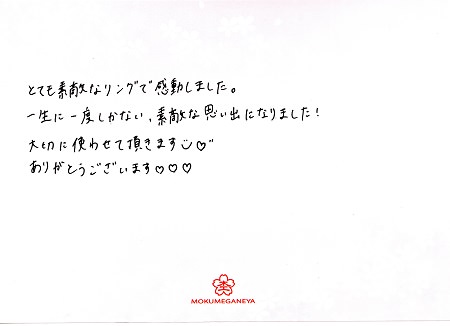 とても素敵なリングで感動しました。
一生に一度しかない、素敵な思い出になりました！
大切に使わせて頂きます☺♡
ありがとうございます♡♡♡
杢
MOKUMEGANEYA